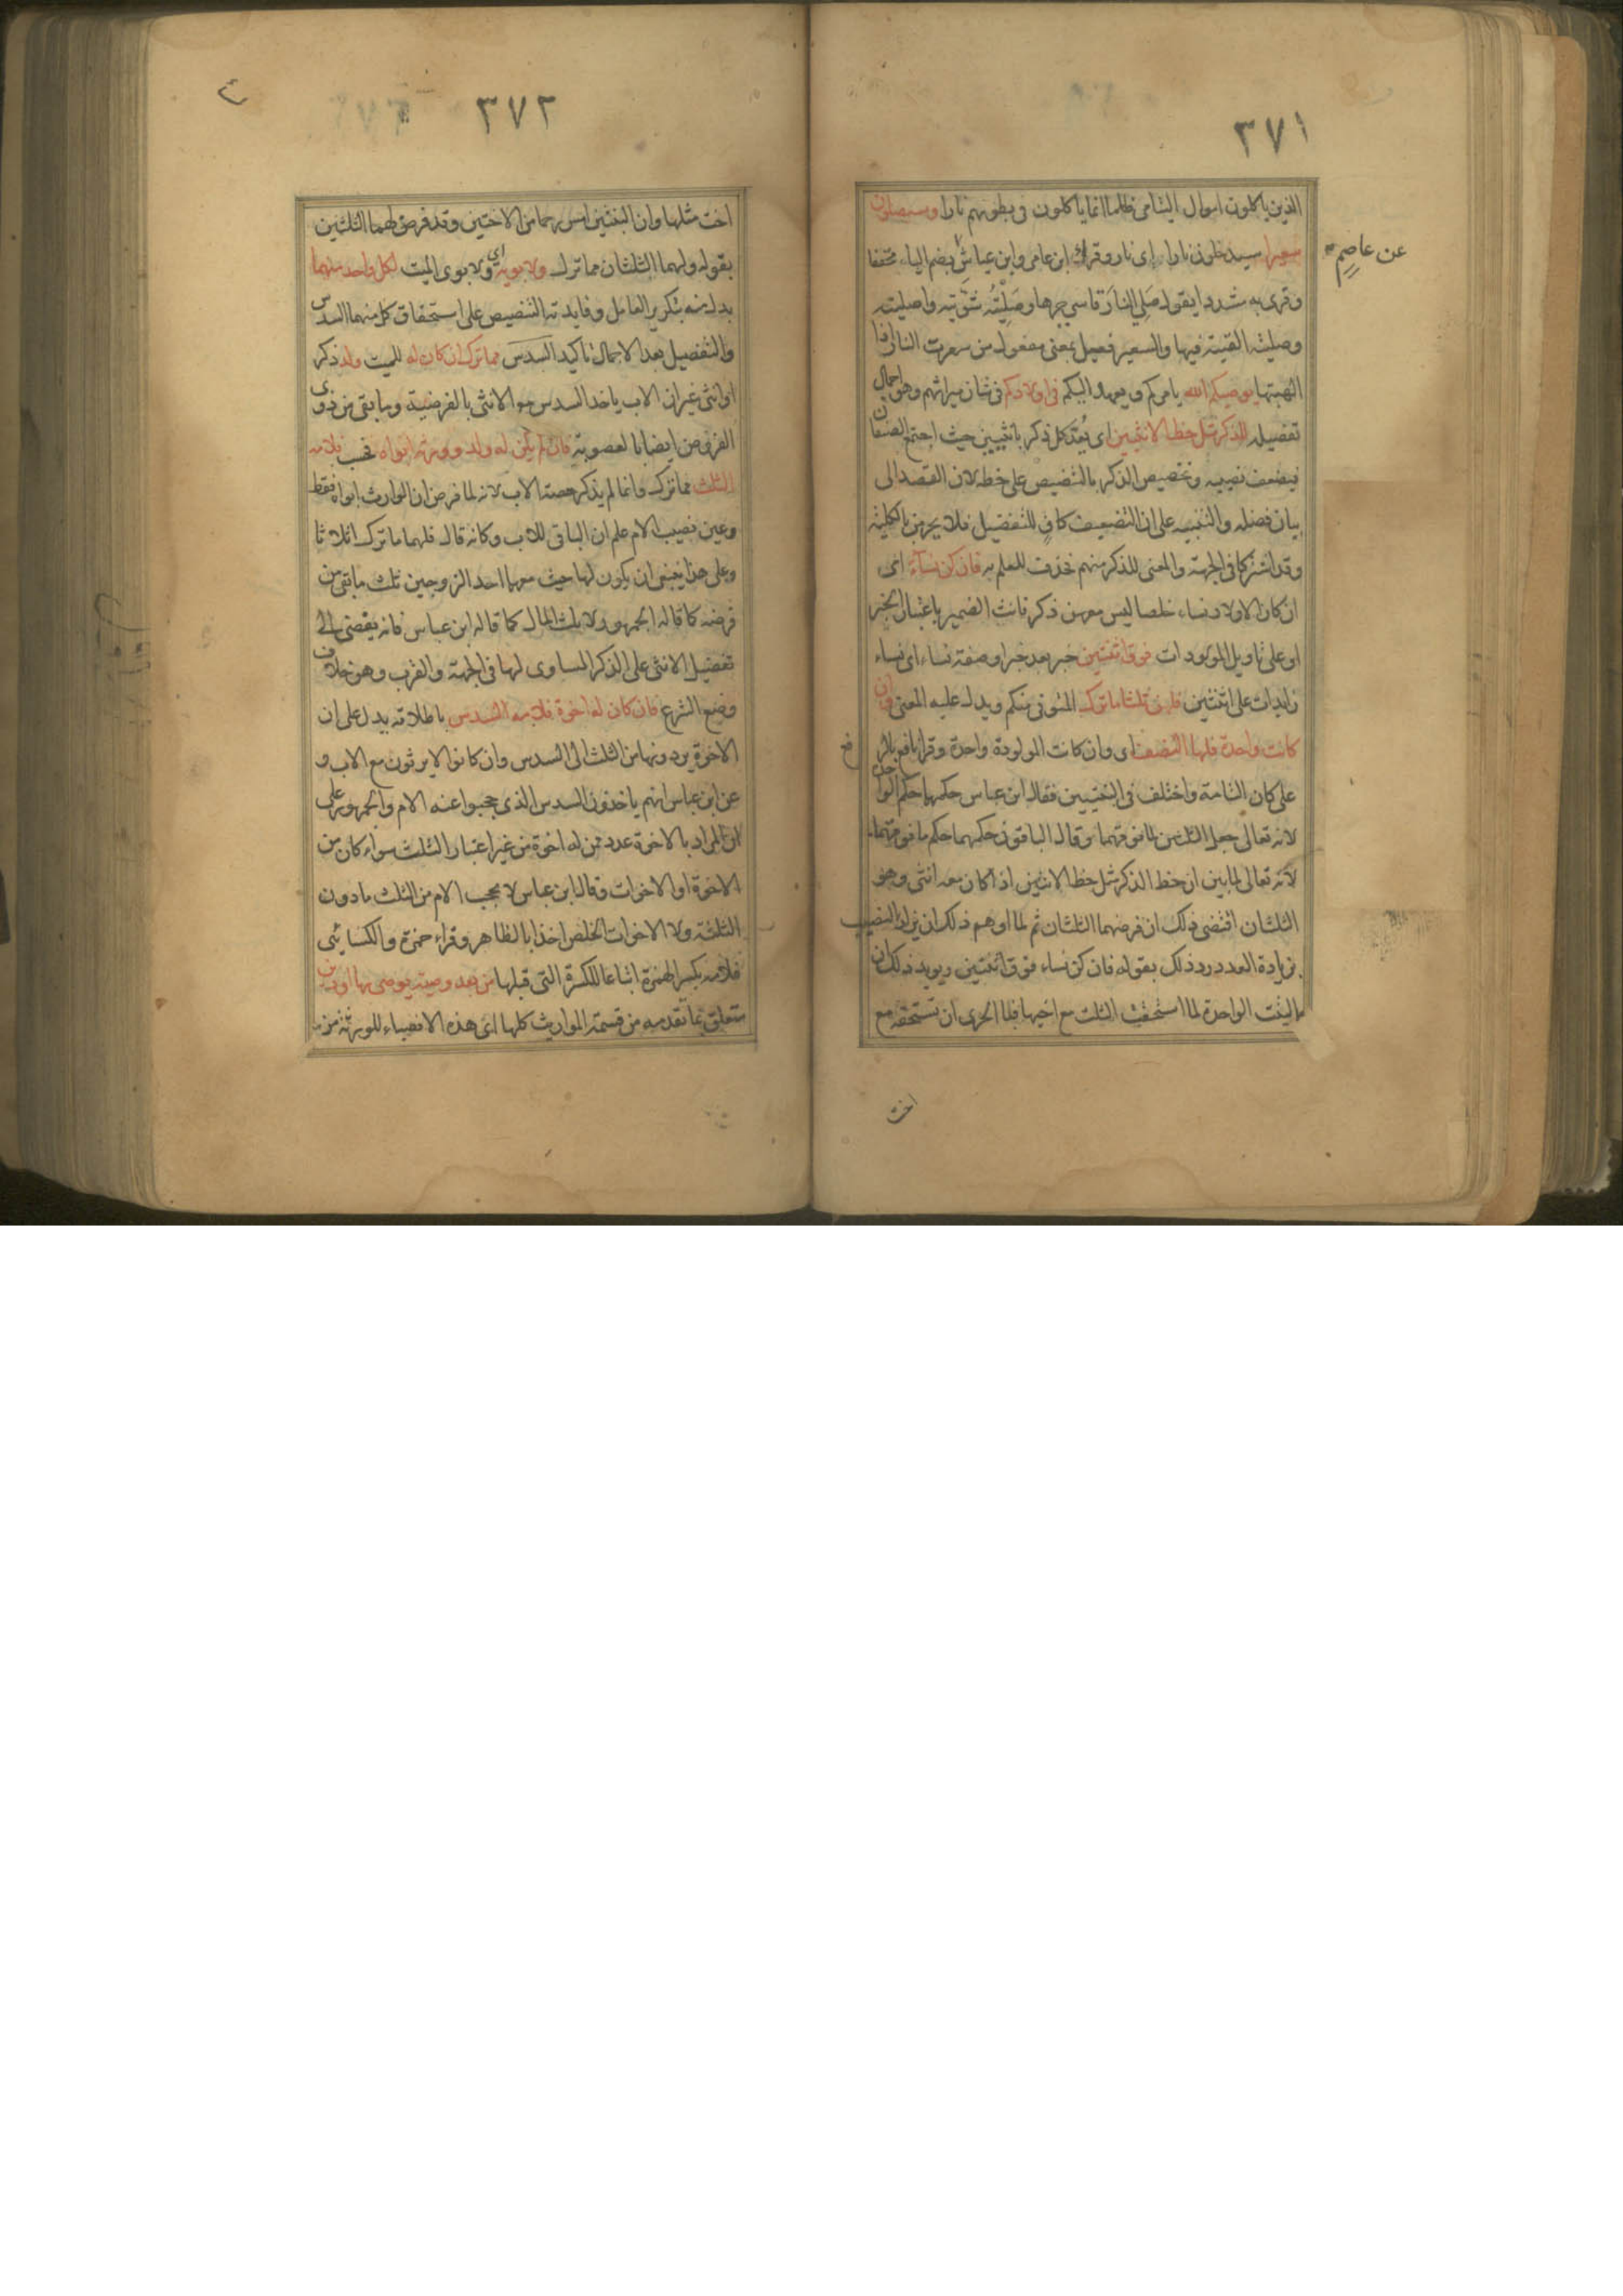 ٣٧١
الذين ياكلون اموال اليتامى ظلما انما ياكلون فى بطونهم نارا وسيصلون
سعيرا سيدخلون نارا اى نار وقرا ابن عامر وابن عياش بضم الياء مخففا
عن عاصم
وقرى به مشددا يقول صَلِي النارَ قاسى حرها وصَلَيْتُه شويته واصليته
وصليته القيته فيها والسعير فعيل بمعنى مفعول من سعرت النار اذا
الهبتها يوصيكم الله يامركم ويعهد اليكم فى اولادكم فى شان ميراثهم وهو اجمال
تفصيله للذكر مثل حظ الانثيين اى يُعدّ كل ذكر بانثيين حيث اجتمع الصنفان
فيضعف نصيبه وتخصيص الذكر بالتنصيص على حظه لان القصد الى
بيان فضله والتنبيه على ان التضعيف كافٍ للتفضيل فلا يحرمن بالكلية
وقد اشتركا فى الجهة والمعنى للذكر منهم فحذف للعلم به فان كن نساءً اى
ان كان الاولاد نساء خلصا ليس معهن ذكر فانث الضمير باعتبار الخبر
او على تاويل المولودات فوق اثنتين خبر بعد خبر او صفة نساء اى نساء
زايدات على اثنتين فلهن ثلثا ما ترك المتوفى منكم ويدل عليه المعنى وان
كانت واحدة فلها النصف اى وان كانت المولودة واحدة وقرا نافع بالرفع
على كان التامة واختلف فى البنتيين فقال ابن عباس حكمهما حكم الواحدة
لانه تعالى جعل الثلثين لما فوقهما وقال الباقون حكمهما حكم ما فوقهما
لانه تعالى لما بين ان حظ الذكر مثل حظ الانثيين اذا كان معه انثى وهو
الثلثان اقتضى ذلك ان فرضهما الثلثان ثم لما اوهم ذلك ان يزاد النصيب
بزيادة العدد رد ذلك بقوله فان كن نساء فوق اثنتين ويويد ذلك ان
البنت الواحدة لما استحقت الثلث مع اخيها فبالحرى ان تستحقه مع
اخت
٣٧٢
اخت مثلها وان البنتين امس رحما من الاختين وقد فرض لهما الثلثين
بقوله ولهما الثلثان مما ترك ولابويه اى ولابوى الميت لكل واحد منهما
بدل منه بتكرير العامل وفايدته التنصيص على استحقاق كل منهما السدس
والتفصيل بعد الاجمال تاكيد السدس مما ترك ان كان له للميت ولد ذكر
او انثى غير ان الاب ياخذ السدس مع الانثى بالفرضية وما بقى من ذوى
الفروض ايضا بالعصوبة فان لم يكن له ولد وورثه ابواه فحسب فلامه
الثلث مما ترك وانما لم يذكر حصة الاب لانه لما فرض ان الوارث ابواه فقط
وعين نصيب الام علم ان الباقى للاب وكانه قال فلهما ما ترك اثلاثا
وعلى هذا ينبغى ان يكون لها حيث معهما احد الزوجين ثلث ما بقى من
فرضه كما قاله الجمهور لا ثلث المال كما قاله ابن عباس فانه يفضى الى
تفضيل الانثى على الذكر المساوى لها فى الجهة والقرب وهو خلاف
وضع الشرع فان كان له اخوة فلامه السدس باطلاقه يدل على ان
الاخوة يردونها من الثلث الى السدس وان كانوا لا يرثون مع الاب و
عن ابن عباس انهم ياخذون السدس الذى حجبوا عنه الام والجمهور على
ان المراد بالاخوة عدد ممن له اخوة من غير اعتبار الثلث سواء كان من
الاخوة او الاخوات وقال ابن عباس لا يحجب الام من الثلث ما دون
الثلثة ولا الاخوات الخلص اخذا بالظاهر وقراء حمزة والكسائى
فلامه بكسر الهمزة اتباعا للكسرة التى قبلها من بعد وصية يوصى بها او دين
متعلق بما تقدمه من قسمة المواريث كلها اى هذه الانصباء للورثة من